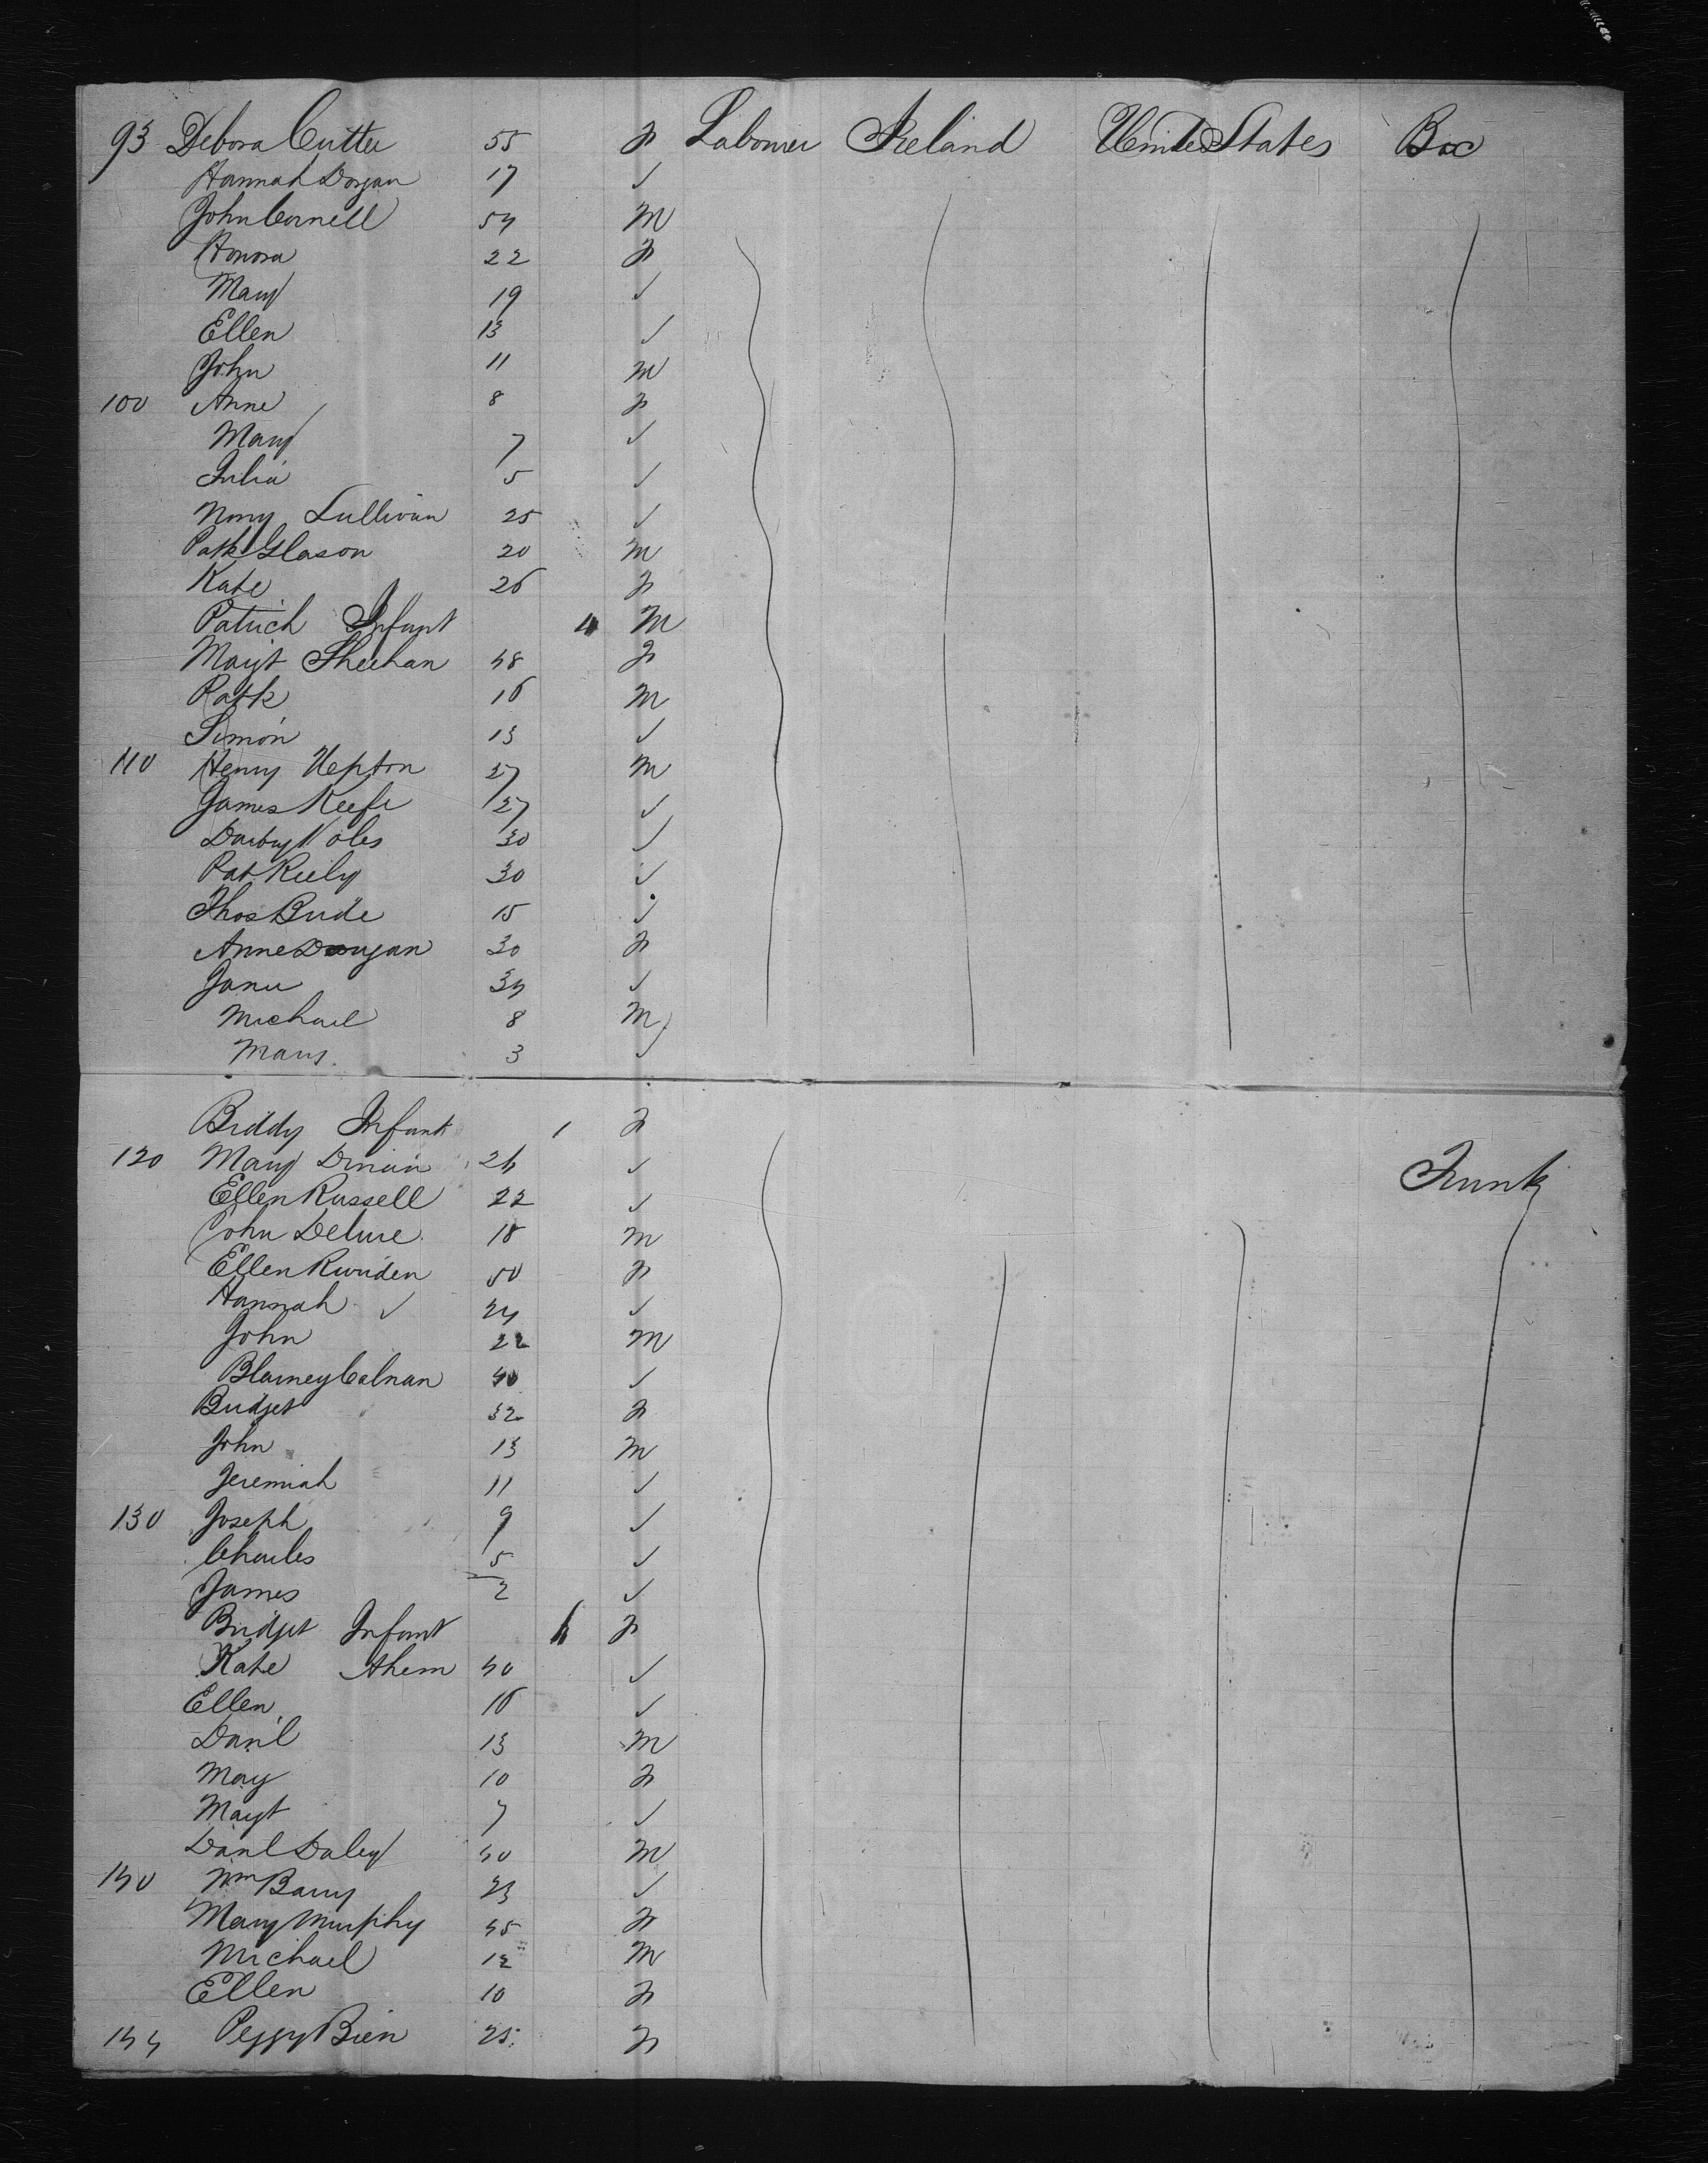 93 Debora Cutter 55 F Laborer Ireland United States Box
Hannah Dorgan 17 ✓
John Connell 54 M
Honora 22 F
Mary 19 ✓
Ellen 13 ✓
John 11 M
100 Anne 8 F
Mary 7 ✓
Julia 5 ✓
Nony Sullivan 25 ✓
Patk Glason 20 M
Kate 26 F
Patrick Infant 4 M
Margt Sheehan 48 F
Patk 16 M
Simon 13 ✓
110 Henry Upton 27 M
James Keefe 27 ✓
Darby Voles 30 ✓
Pat Riely 30 ✓
Thos Bride 15 ✓
Anne Dorgan 30 F
Jane 34 ✓
Michael 8 M
Mary 3 ✓
Biddy Infant 1 F
120 Mary Dinian 24 ✓ Trunk
Ellen Russell 22 ✓
John Deluie 18 M
Ellen Rierden 50 F
Hannah ✓ 24 ✓
John 22 M
Blarney Calnan 40 ✓
Bridget 32 F
John 13 M
Jeremiah 11 ✓
130 Joseph 9 ✓
Charles 5 ✓
James 2 ✓
Bridget Infant F
Kate Ahern 40 ✓
Ellen 16 ✓
Danl 13 M
May 10 F
Margt 7 ✓
Danl Daley 40 M
140 Wm Barry 23 ✓
Mary Murphy 45 F
Michael 12 M
Ellen 10 F
144 Peggy Bien 25 F